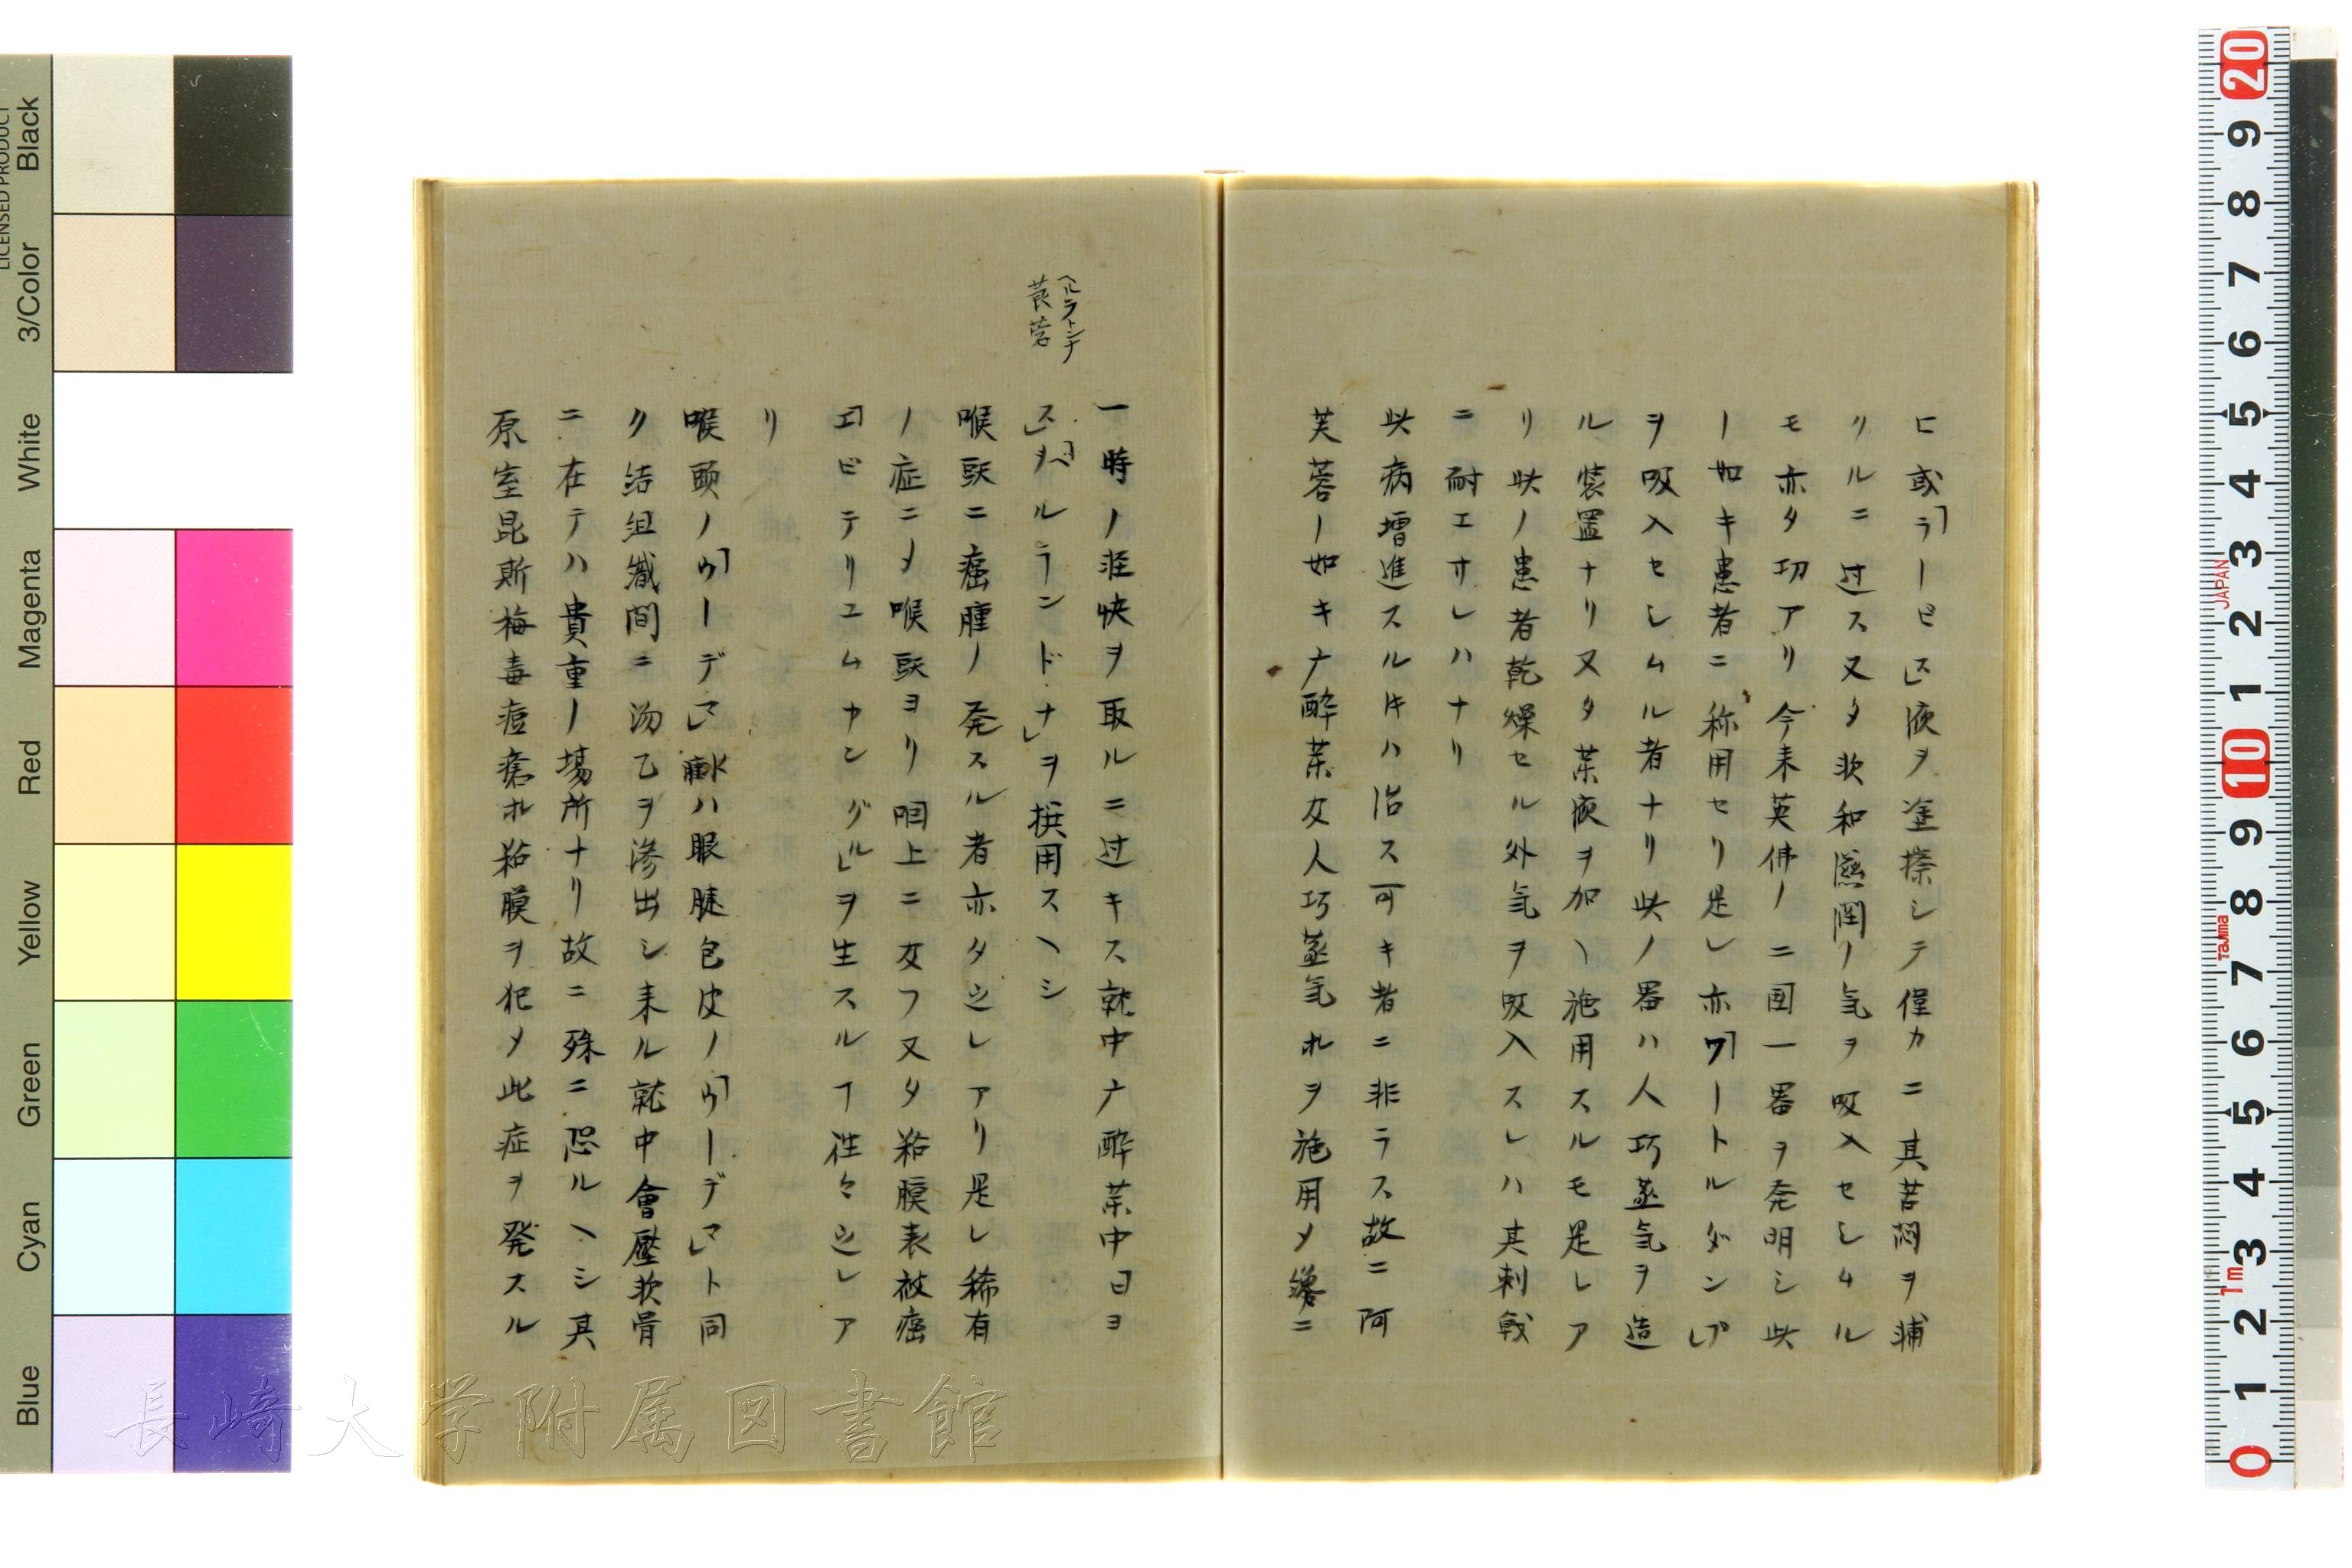 ヒ或「ラーピス」液ヲ塗擦シテ僅カニ其苦悶ヲ補
フルニ过ス又タ軟和湿潤ノ気ヲ吸入セシムル
モ亦タ功アリ今来英佛ノ二国一器ヲ発明シ此
ノ如キ患者ニ称用セリ是レ亦「ワートルダンプ」
ヲ吸入セシムル者ナリ此ノ器ハ人巧蒸気ヲ造
ル装置ナリ又タ薬液ヲ加ヘ施用スルモ是レア
リ此ノ患者乾燥セル外気ヲ吸入スレハ其刺戟
ニ耐エサレハナリ
此病増進スル片ハ治ス可キ者ニ非ラス故ニ阿
芙蓉ノ如キ广酔薬及人巧蒸気ホヲ施用メ纔ニ
一時ノ軽快ヲ取ルニ过キス就中广酔薬中日ヨ
ス」ヲ「ベルランドナ」ヲ撰用スヘシ
ヘルラトンナ
莨菪
喉頭ニ癌腫ノ発スル者亦タ之レアリ是レ稀有
ノ症ニメ喉頭ヨリ咽上ニ及フ又タ粘膜表被癌
「エピテリユムカングル」ヲ生スルヿ往々之レア
リ
喉頭ノ「ウーデマ」水腫ハ眼睫包皮ノ「ウーデマ」ト同
ク結組織間ニ汤乙ヲ滲出シ来ル就中會壓軟骨
ニ在テハ貴重ノ場所ナリ故ニ殊ニ恐ルヘシ其
原室昆斯梅毒痘瘡ホ粘膜ヲ犯メ此症ヲ発スル
長崎大学附属図書館
LICENSED PRODUCT
Black
3/Color
White
Magenta
Red
Yellow
Green
Cyan
Blue
20
9
8
7
6
5
4
3
2
1
10
9
8
7
6
5
4
3
2
1
0
JAPAN
Tajima
1m